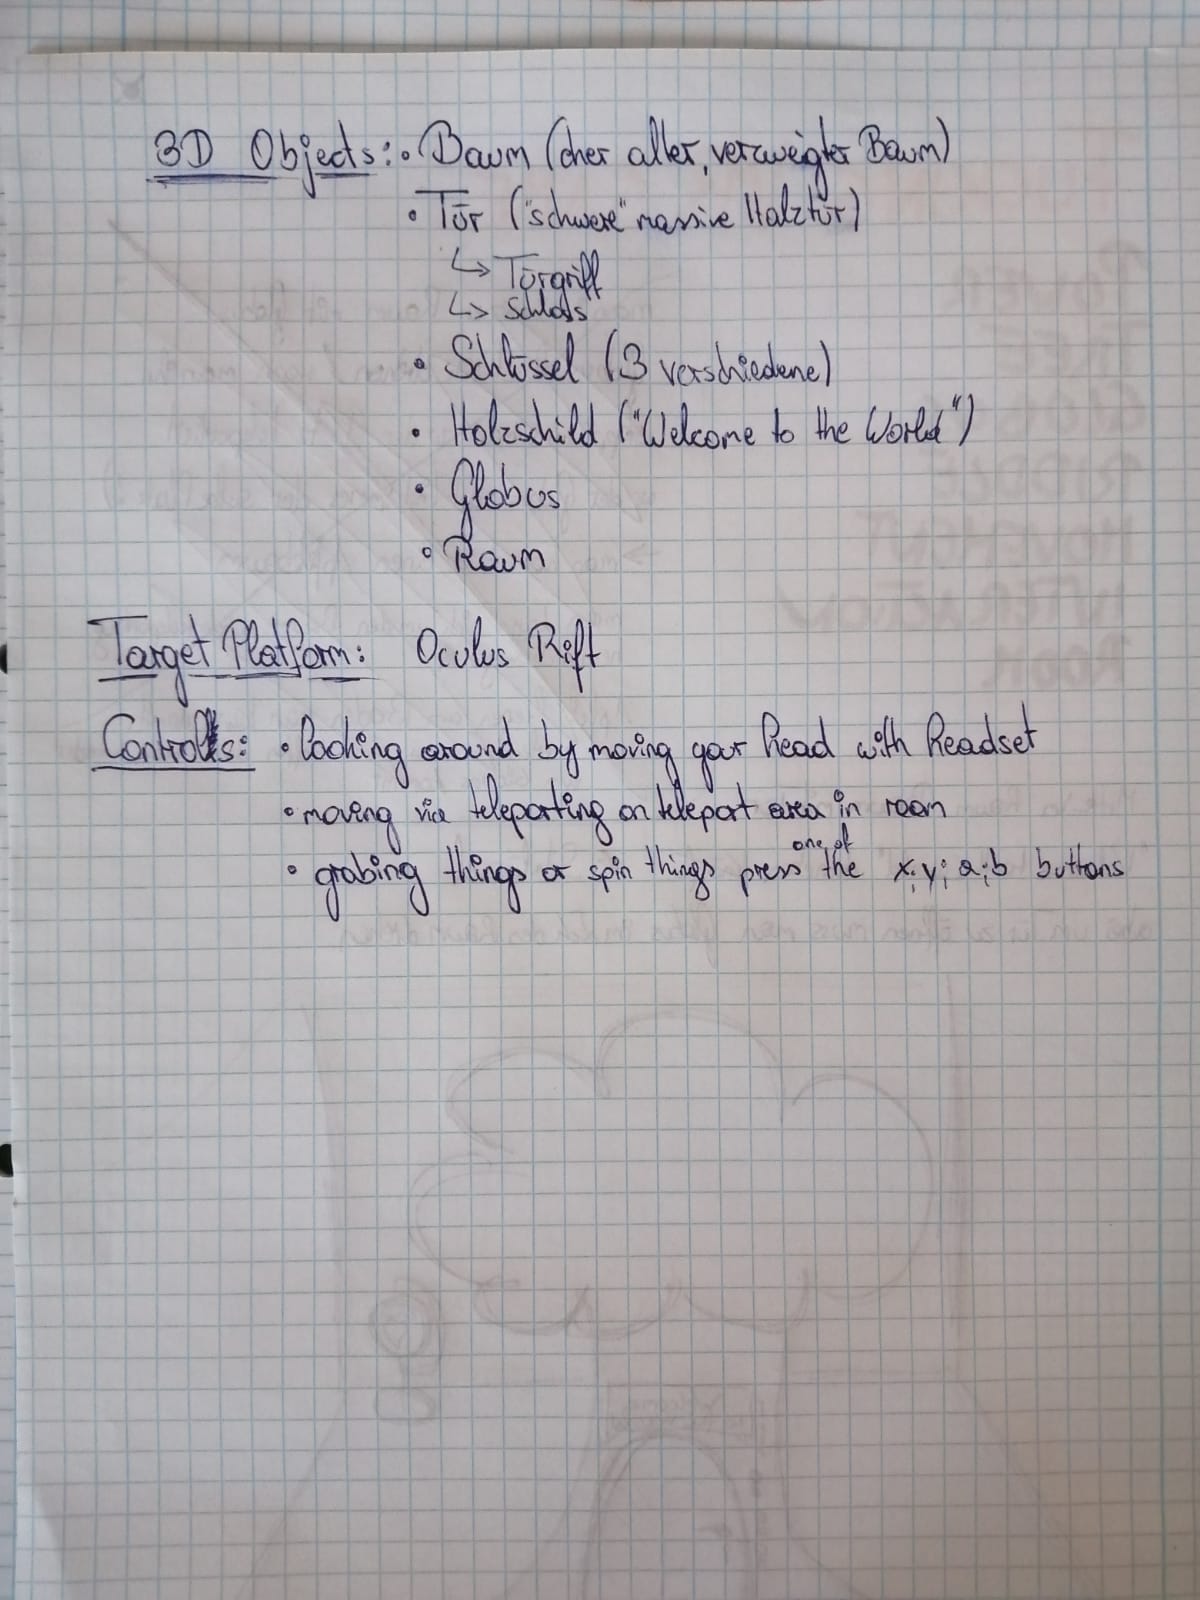 3D Objects: • Baum (eher alter, verzweigter Baum)
• Tür ("schwere" massive Holztür)
↳ Türgriff
↳ Schloss
• Schlüssel (3 verschiedene)
• Holzschild ("Welcome to the World")
• Globus
• Raum
Target Platform: Oculus Rift
Controls: • looking around by moving your head with headset
• moving via teleporting on teleport area in room
• grabing things or spin things press one of the x; y; a; b buttons